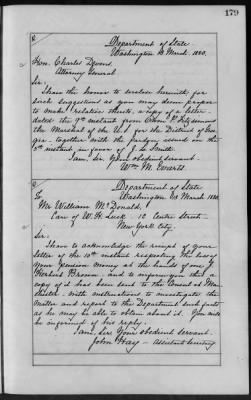 179
Department of State
Washington March, 1880.
Hon. Charles Devens
Attorney General
Sir:
I have the honor to enclose herewith for
such suggestions as you may deem proper
to make relative thereto a copy of a letter
dated the 9th instant from
the Marshal of the U.S. for the District of Geor-
gia, together with the pardon issued on the
5th instant in favor of J. C. Smith.
I am, Sir, Your obedient servant,
Wm. M. Evarts.
Department of State
To Washington March 1880.
Mr. William McDonald,
Care of W. H. Luck 10 Centre Street
New York City.
Sir:
I have to acknowledge the receipt of your
letter of the 10th instant respecting the loss of
your pension money at the hands of one
Herbert Brown and to inform you that a
copy of it has been sent to the Consul at Man-
chester with instructions to investigate the
matter and report to the Department such facts
as he may be able to obtain about it. You will
be informed of his reply.
I am, Sir, Your obedient servant.
John Hay - Assistant Secretary